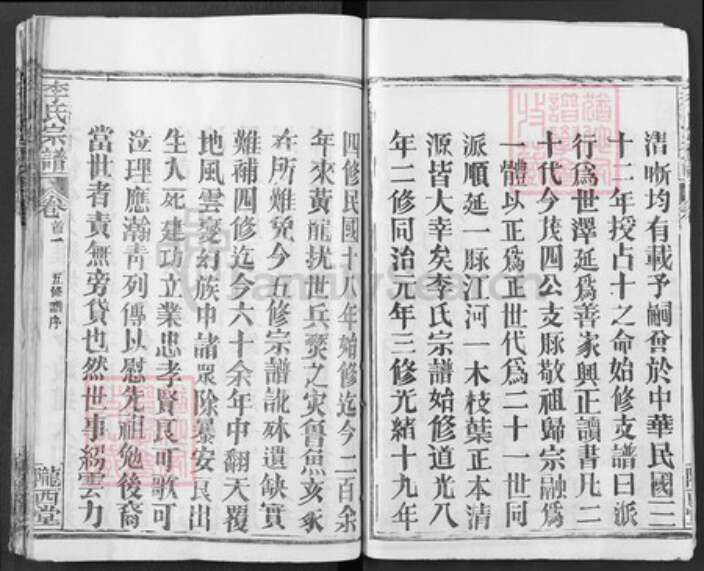 清晰均有載予嗣會於中華民國二
十二年授占十之命始修支譜曰派
行爲世澤延爲善家興正讀書凡二
十代今茂四公支脉敬祖歸宗融爲
一體以正爲正世代爲二十一世同
派順延一脉江河一木枝葉正本清
源皆大幸矣李氏宗譜始修道光八
年二修同治元年三修光緒十九年
四修民國十八年始修迄今二百余
年來黃龍扰世兵燹之灾魯魚亥豕
在所難免今五修宗譜訛砵遺缺實
難補四修迄今六十余年中翻天覆
地風雲變幻族中諸眾除暴安良出
生入死建功立業忠孝賢良可歌可
泣理應瀚青列傳以慰先祖勉後裔
當世者責無旁貸也然世事紛雲力
李氏宗譜
卷首一
五修譜序
隴西堂
FamilySearch